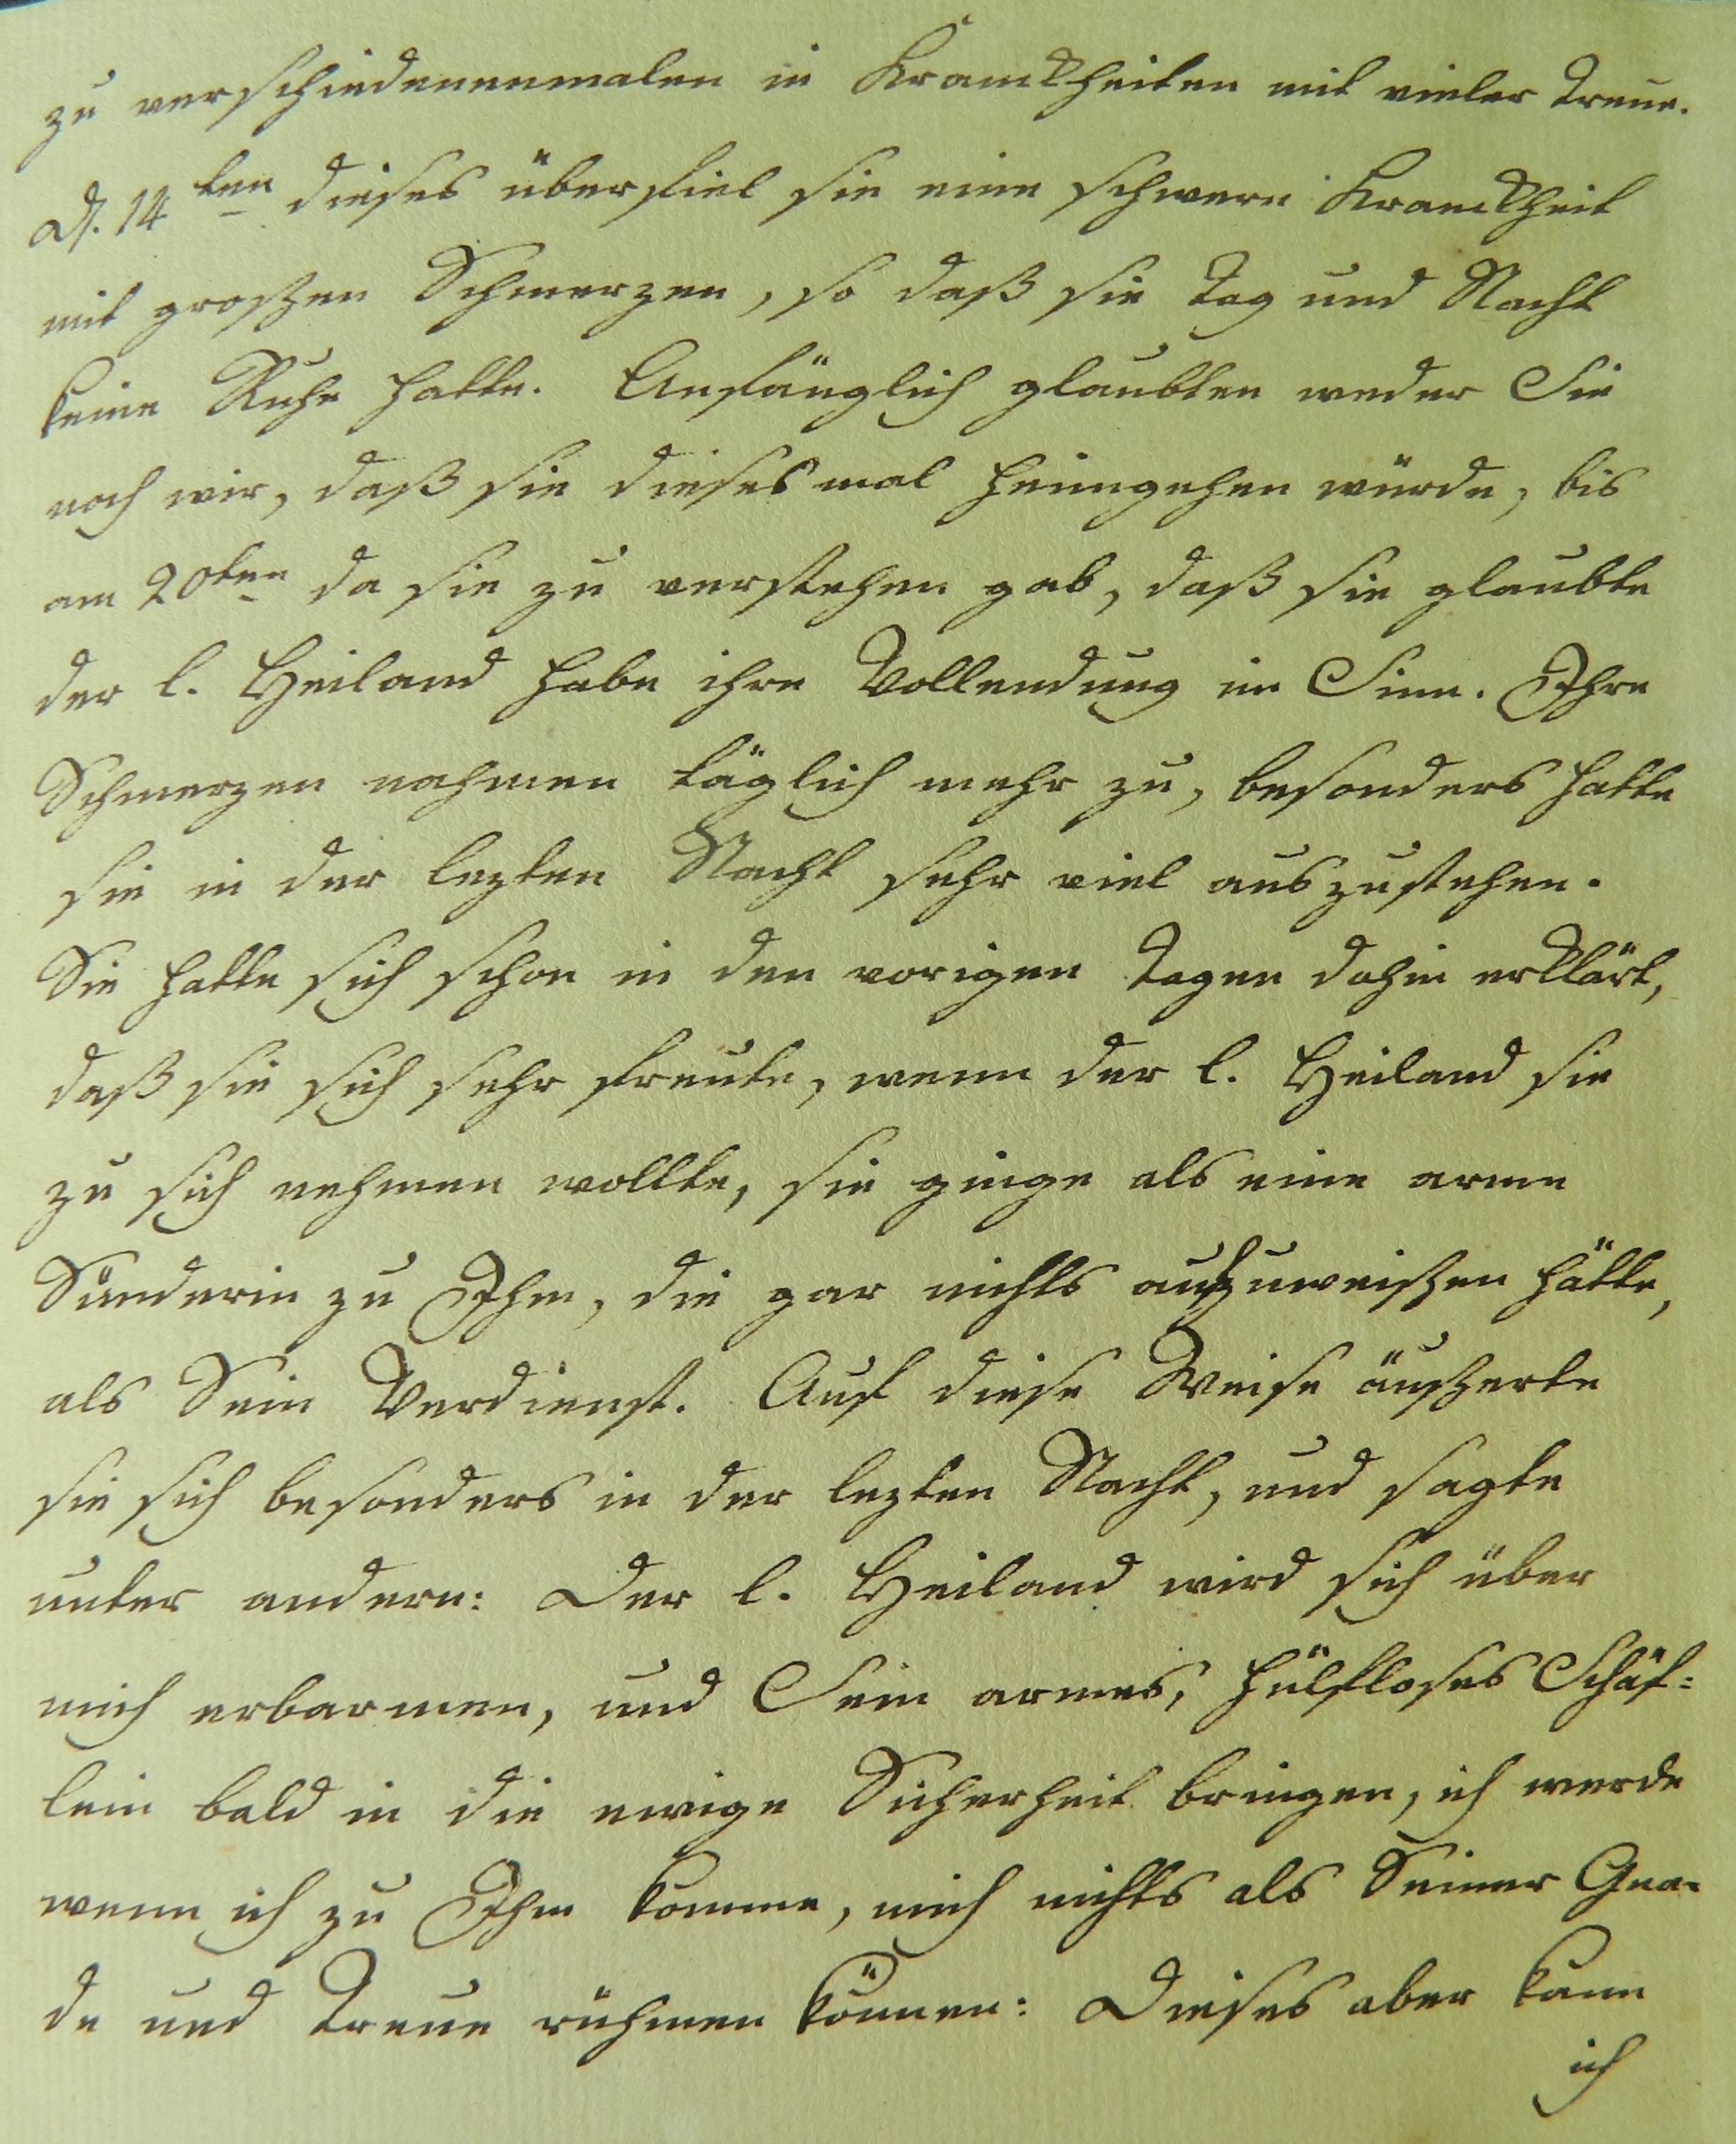 zu verschiedenenmalen in Kranckheiten mit vieler Treue.
D. 14ten dieses überfiel sie eine schwere Kranckheit
mit großen Schmerzen, so daß sie Tag und Nacht
keine Ruhe hatte. Anfänglich glaubten weder Sie
noch wir, daß sie dieses mal heimgehen würde, bis
am 20ten da sie zu verstehen gab, daß sie glaubte
der l. Heiland habe ihre Vollendung im Sinn. Ihre
Schmerzen nahmen täglich mehr zu, besonders hatte
sie in der lezten Nacht sehr viel auszustehen.
Sie hatte sich schon in den vorigen Tagen dahin erklärt,
daß sie sich sehr freute, wenn der l. Heiland sie
zu sich nehmen wollte, sie ginge als eine arme
Sünderin zu Ihm, die gar nichts aufzuweißen hätte,
als Sein Verdienst. Auf diese Weise äußerte
sie sich besonders in der lezten Nacht, und sagte
unter andern: Der l. Heiland wird sich über
mich erbarmen, und Sein armes, hülfloses Schäf=
lein bald in die ewige Sicherheit bringen, ich werde
wenn ich zu Ihm komme, mich nichts als Seiner Gna=
de und Treue rühmen können: Dieses aber kann
ich